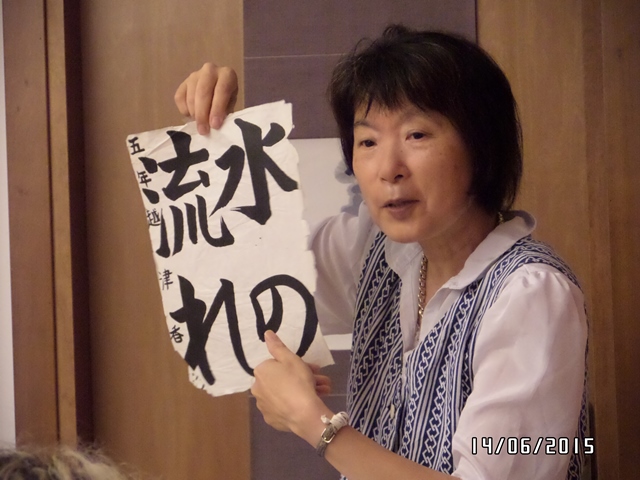 水の
流れ
五年越津
14/06/2015